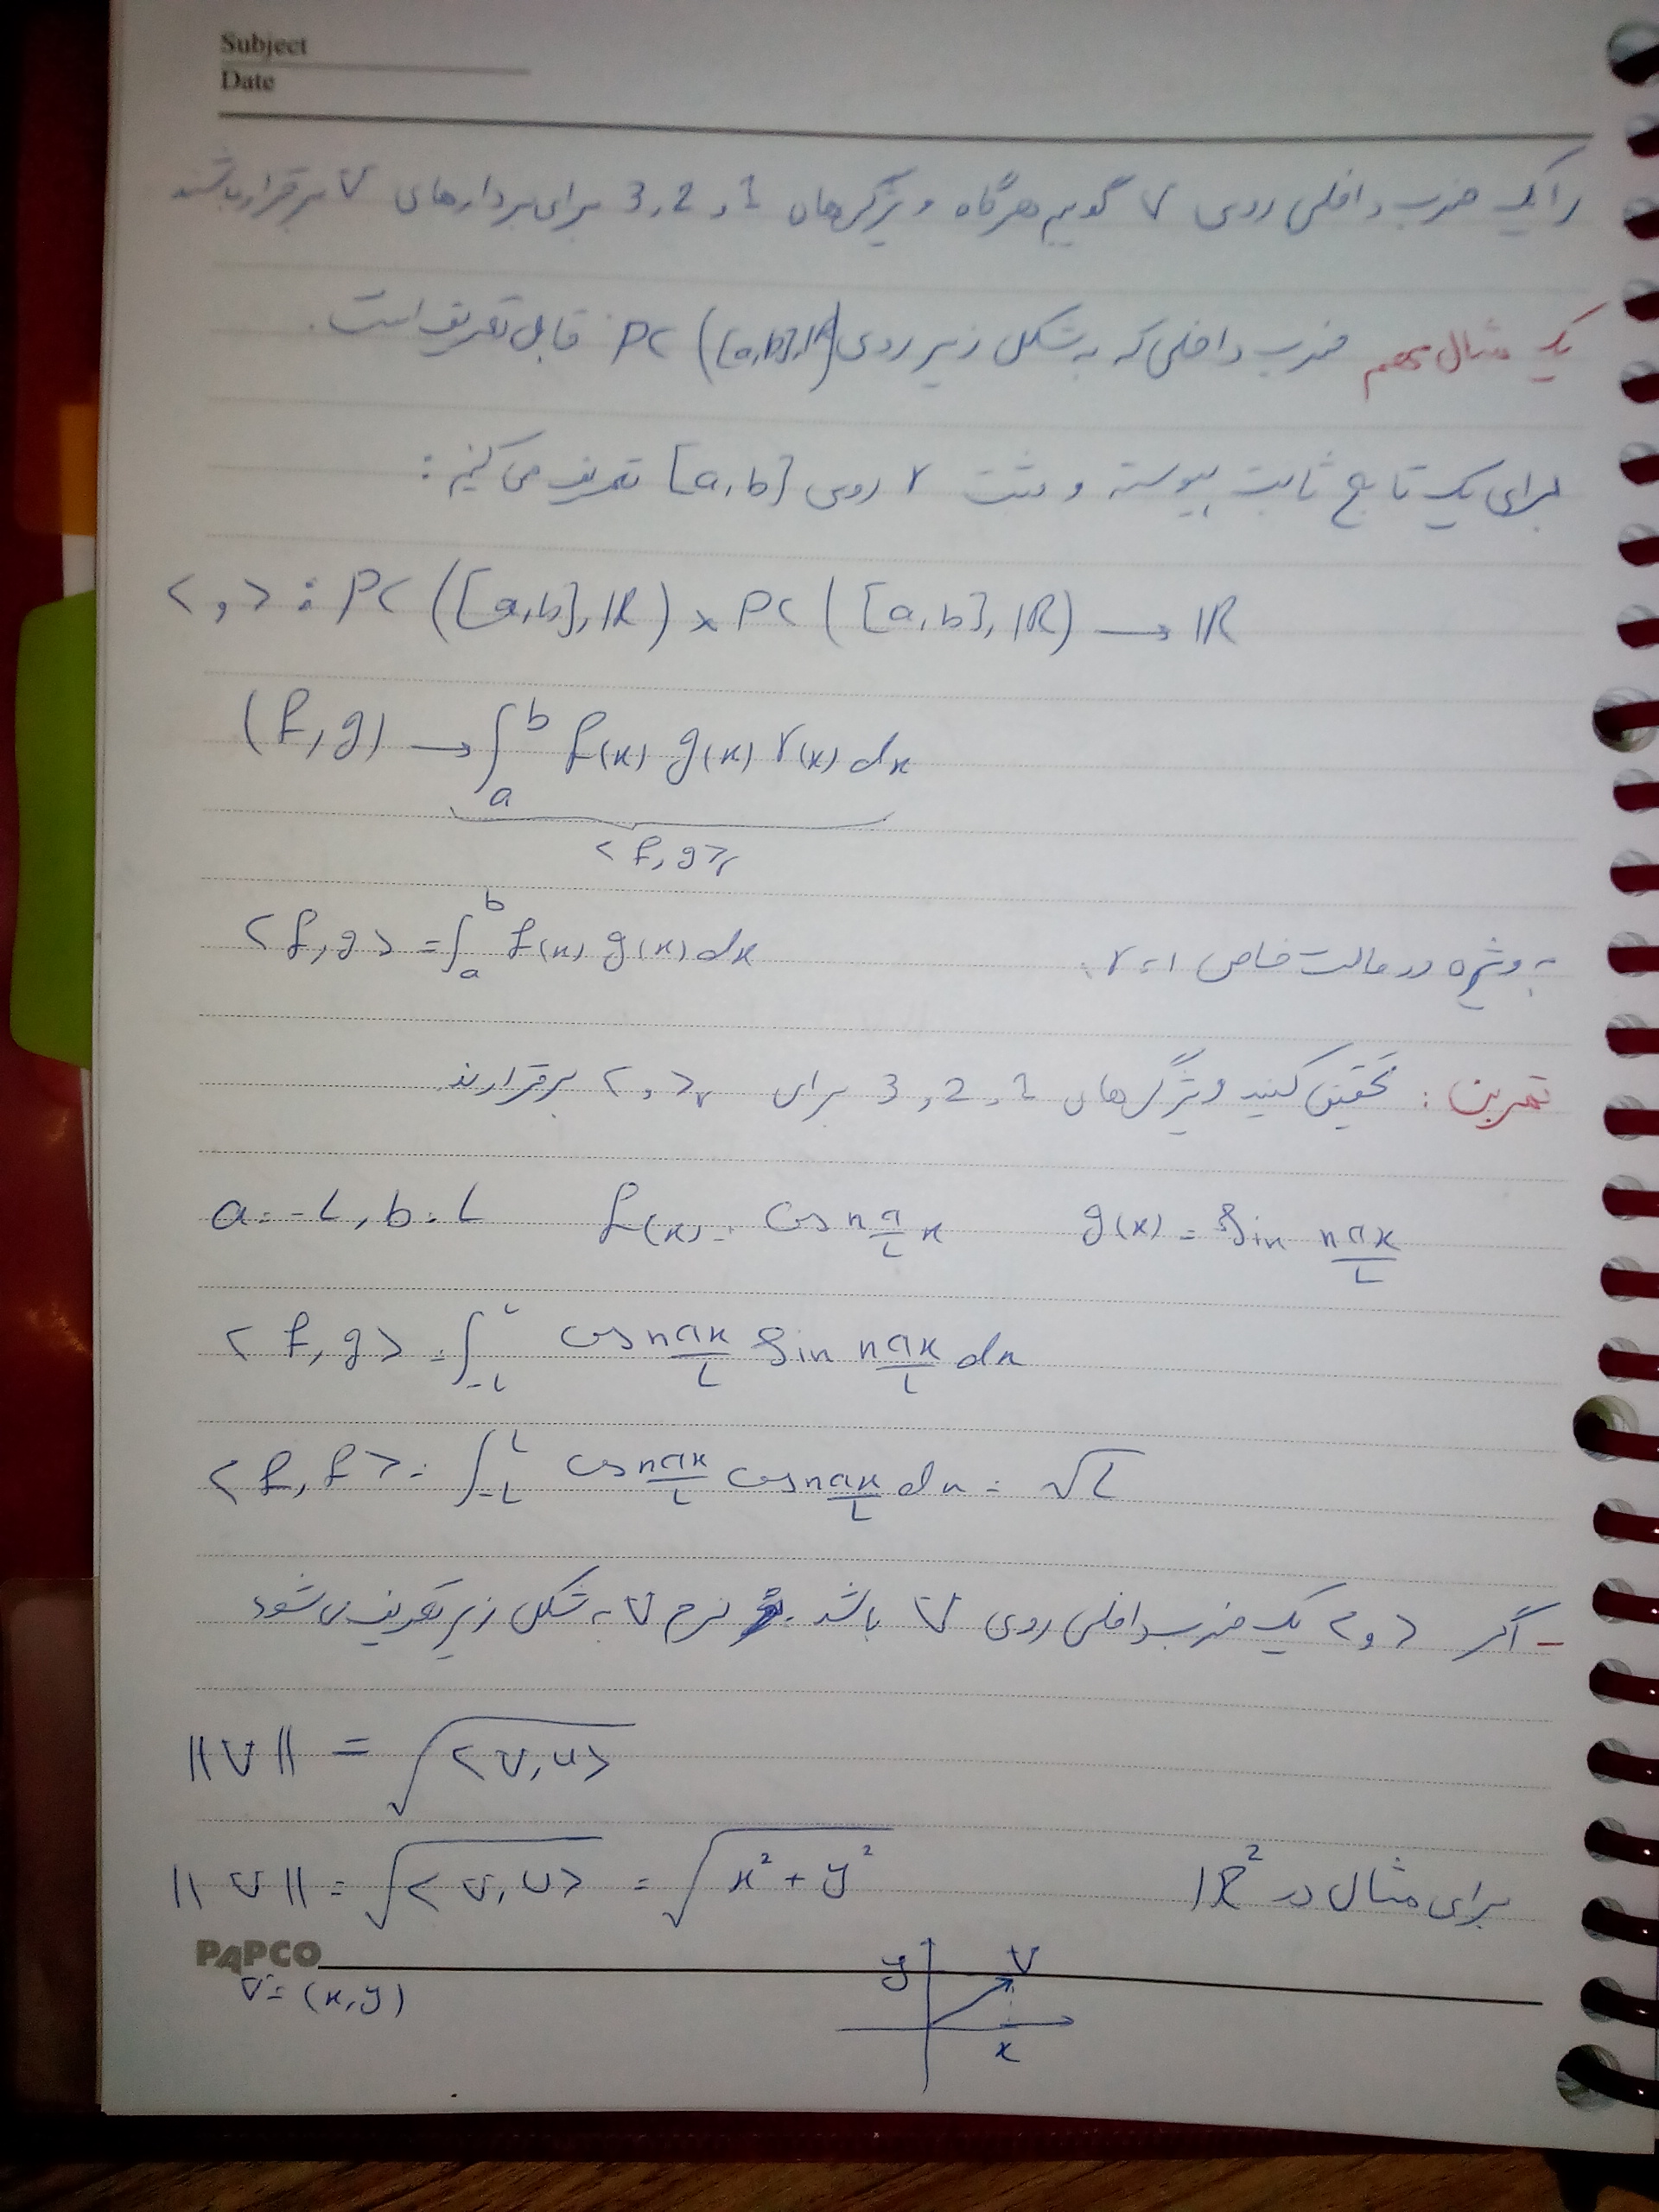 Subject
Date
را یک ضرب داخلی روی V گوییم هرگاه ویژگی‌های 1, 2, 3 برای بردارهای V برقرار باشند
یک مثال مهم ضرب داخلی که به شکل زیر روی PC([a,b],ℝ) قابل تعریف است.
برای یک تابع ثابت پیوسته و مثبت r روی [a,b] تعریف می کنیم:
< , > : PC([a,b],ℝ) × PC([a,b],ℝ) → ℝ
(f,g) → ∫_a^b f(x) g(x) r(x) dx
<f,g>_r
<f,g> = ∫_a^b f(x) g(x) dx به ویژه در حالت خاص r=1:
تمرین: تحقیق کنید ویژگی‌های 1, 2, 3 برای < , >_r برقرارند
a=-L, b=L f(x)= cos nπ/L x g(x)= Sin nπx/L
<f,g> = ∫_-L^L cos nπx/L Sin nπx/L dx
<f,f> = ∫_-L^L cos nπx/L cos nπx/L dx = √L
- اگر < , > یک ضرب داخلی روی V باشد. نرم v به شکل زیر تعریف می شود
||v|| = √<v,v>
||v|| = √<v,v> = √x²+y² برای مثال در ℝ²
PAPCO
v=(x,y)
y v
x